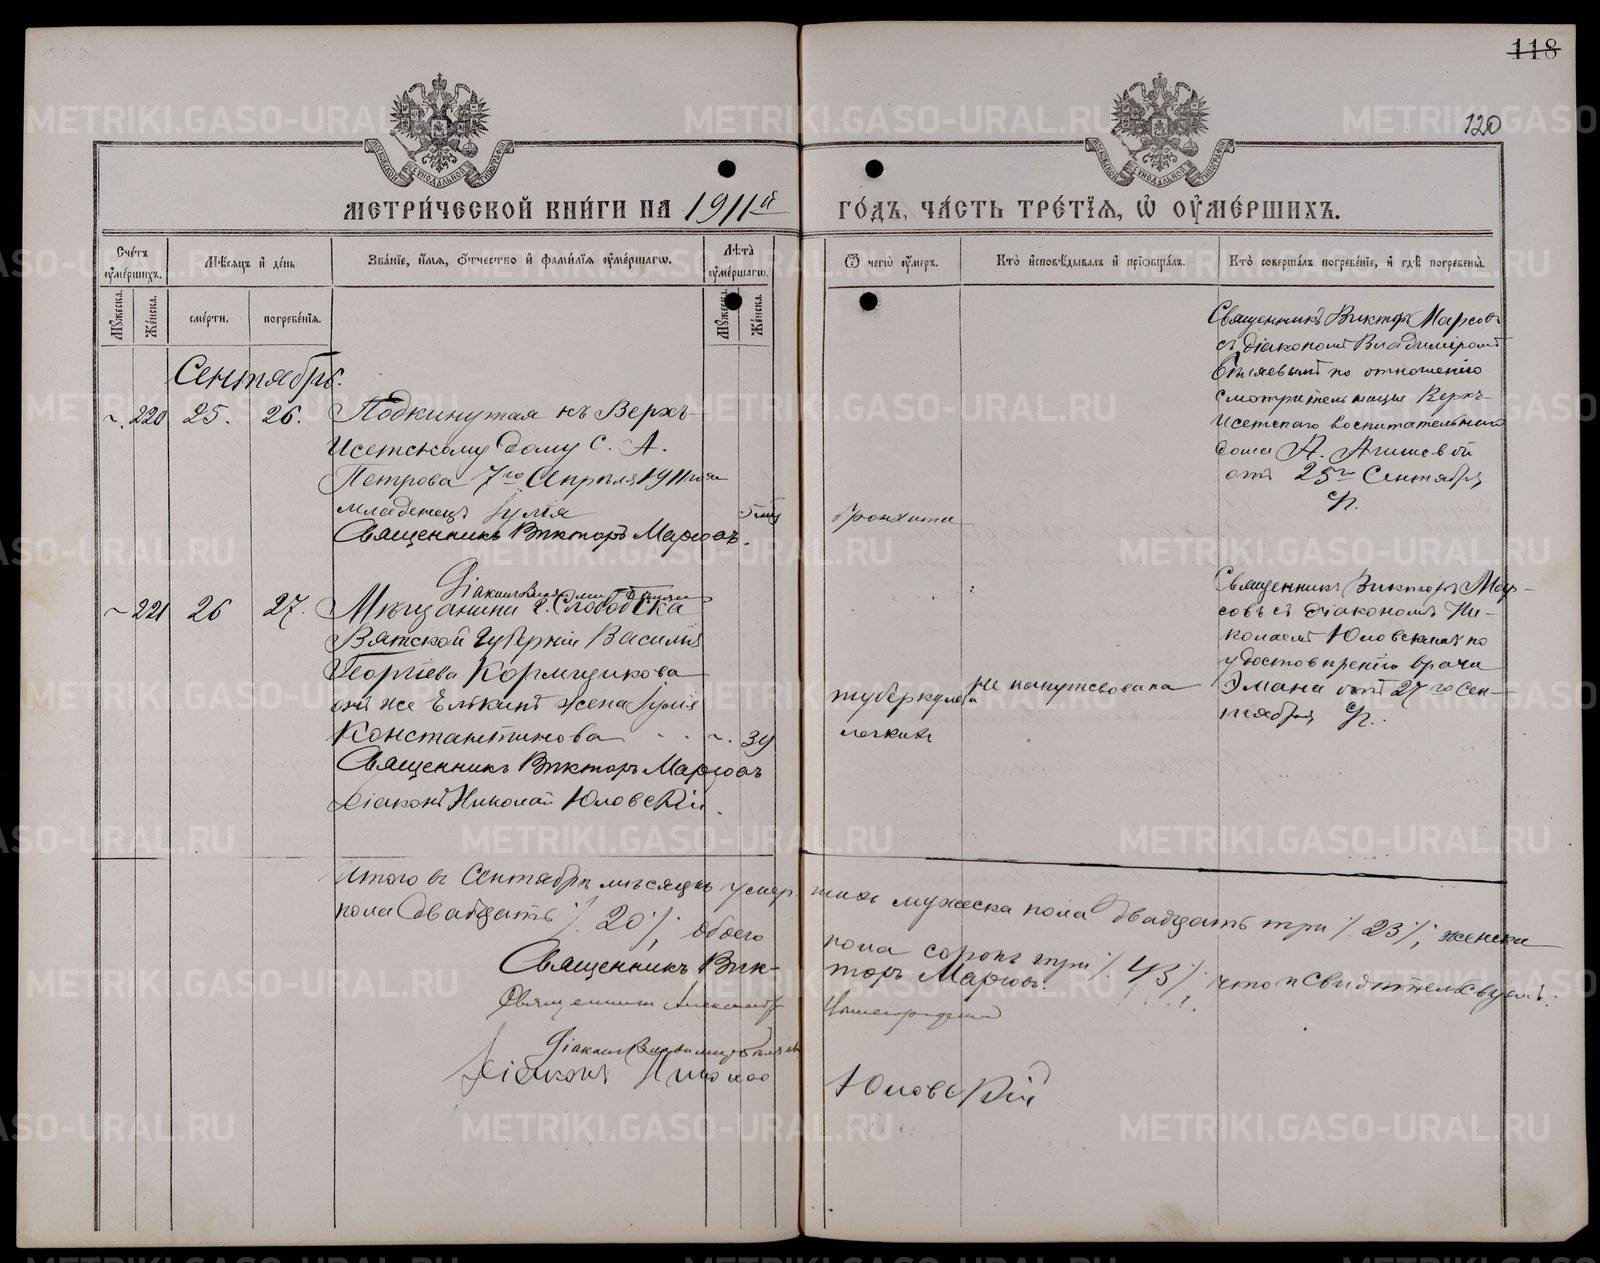 118
120
МЕТРИЧЕСКОЙ КНИГИ НА 1911й
ГОДЪ, ЧАСТЬ ТРЕТІЯ, Ѿ ОУМЕРШИХЪ.
Счетъ оумершихъ.
Мѣсяцъ и день
Званіе, имя, отчество и фамилія оумершагѡ.
Лѣта оумершагѡ.
Ѿ чегѡ оумеръ.
Кто исповѣдывалъ и пріобщалъ.
Кто совершалъ погребеніе, и гдѣ погребены.
Мужеска.
Женска.
смерти.
погребенія.
Мужеска.
Женска.
Сентябрь.
220 25. 26. Подкинутая къ Верхъ-
Исетскому дому С. А.
Петрова 7го Апрѣля 1911 года
младенецъ Іулія
Священникъ Викторъ Марсовъ.
бронхита
Священникъ Викторъ Марсовъ
съ діакономъ Владиміромъ
Бѣляевымъ по отношенію
смотрительницы Верхъ-
Исетскаго воспитательнаго
дома А.
отъ 25го Сентября
с/г.
221 26 27. Мѣщанина г. Слободска
Вятской губерніи Василія
Георгіева Кормщикова
онъ же Елькинъ жена Іулія
Константинова 39
Священникъ Викторъ Марсовъ
Діаконъ Николай Юловскій.
туберкулеза
легкихъ
не напутствована
Священникъ Викторъ Мар-
совъ съ діакономъ Ни-
колаемъ Юловскимъ по
удостовѣренію врача
Эмана отъ 27го Сен-
тября с/г.
Итого въ Сентябрѣ мѣсяцѣ умер-шихъ мужеска пола двадцать три /. 23 /, женска
пола двадцать /. 20 /, обоего пола сорокъ три /. 43 /. что и свидѣтельствуемъ:
Священникъ Вик-торъ Марсовъ.
Священникъ Александръ
Діаконъ Владиміръ Бѣляевъ
Діаконъ Николай Юловскій
METRIKI.GASO-URAL.RU